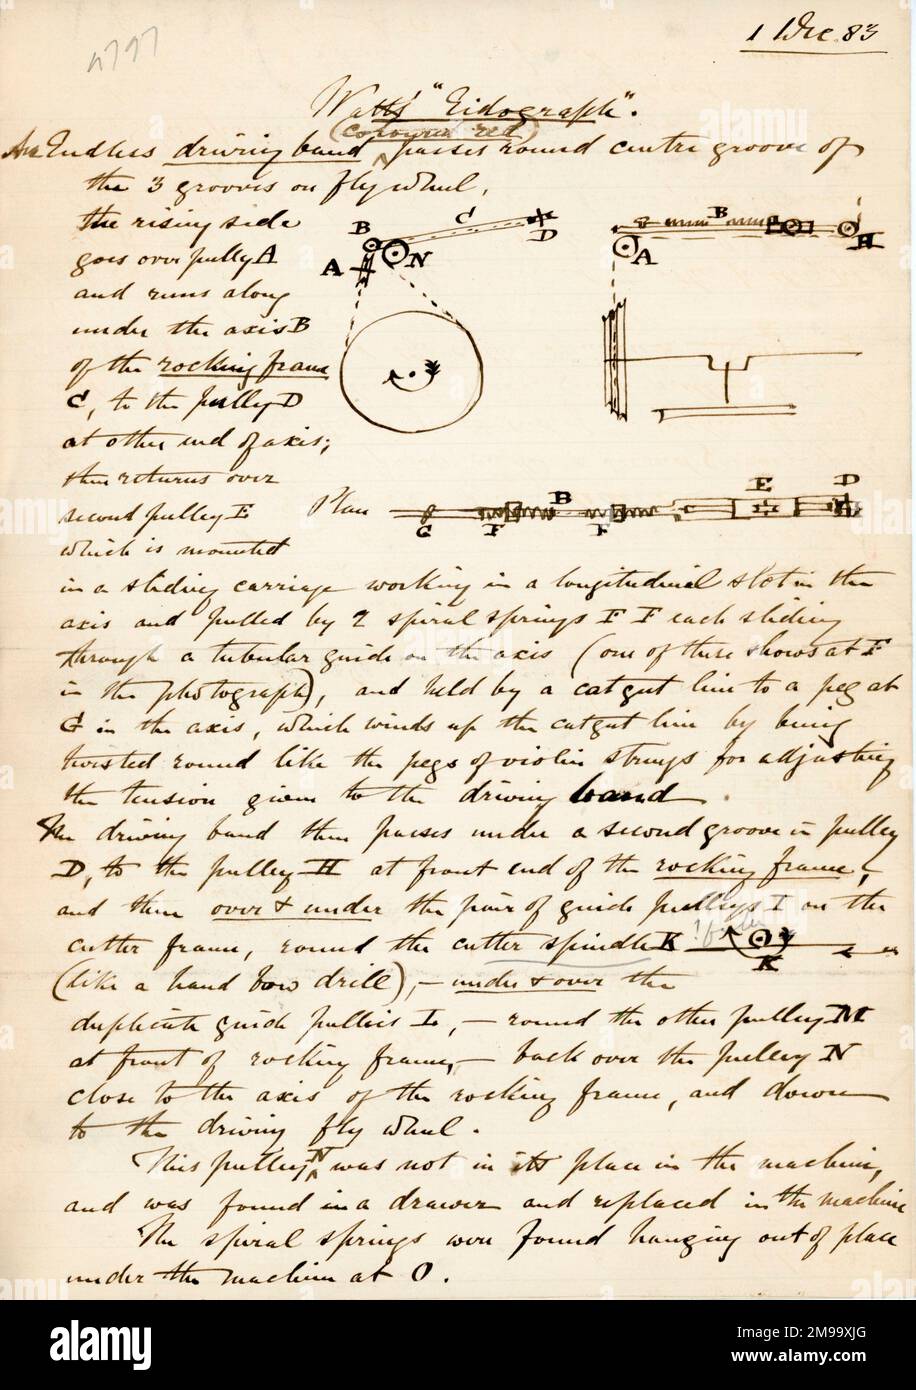 1 Dec. 83
Watts' "Eidograph".
(coloured red)
An Endless driving band passes round centre groove of
the 3 grooves on fly wheel,
the rising side
goes over pulley A
and runs along
under the axis B
of the rocking frame
C, to the pulley D
at other end of axis;
then returns over
second pulley E
which is mounted
B C D
A N
B
A H
Plan
G F B F E D
in a sliding carriage working in a longitudinal slot in the
axis and pulled by 2 spiral springs F F each sliding
through a tubular guide on the axis (one of these shows at F
in the photograph), and held by a catgut line to a peg at
G in the axis, which winds up the catgut line by being
twisted round like the pegs of violin strings for adjusting
the tension given to the driving band.
The driving band then passes under a second groove in pulley
D, to the pulley H at front end of the rocking frame,
and then over & under the pair of guide pulleys I on the
cutter frame, round the cutter spindle K
K
(like a hand bow drill), – under & over the
duplicate guide pullies L, – round the other pulley M
at front of rocking frame, – back over the pulley N
close to the axis of the rocking frame, and down
to the driving fly wheel.
This pulley N was not in its place in the machine,
and was found in a drawer and replaced in the machine
The spiral springs were found hanging out of place
under the machine at O.
alamy
Image ID: 2M99XJG
www.alamy.com